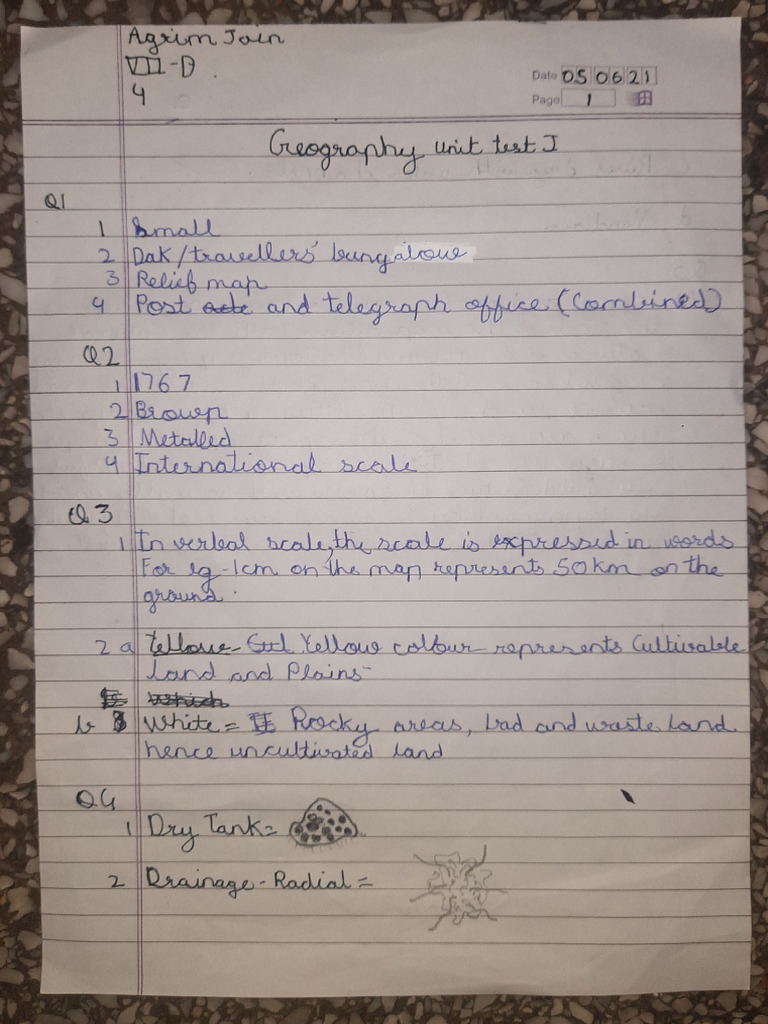 Agrim Jain
VII-D
4
Date 05 06 21
Page 1
Geography unit test I
Q1
1 Small
2 Dak/travellers' bungalow
3 Relief map
4 Post and telegraph office (Combined)
Q2
1 1767
2 Brown
3 Metalled
4 International scale
Q3
1 In verbal scale, the scale is expressed in words
For eg - 1cm on the map represents 50km on the
ground.
2 a Yellow Yellow colour represents Cultivable
land and Plains
Which
b White = Rocky areas, bad and waste land
hence uncultivated land
Q4
1 Dry Tank =
2 Drainage - Radial =